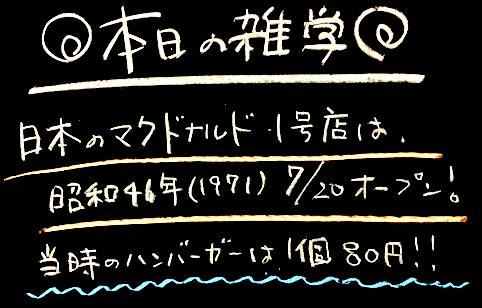 本日の雑学
日本のマクドナルド1号店は、
昭和46年(1971) 7/20オープン!
当時のハンバーガーは1個80円!!